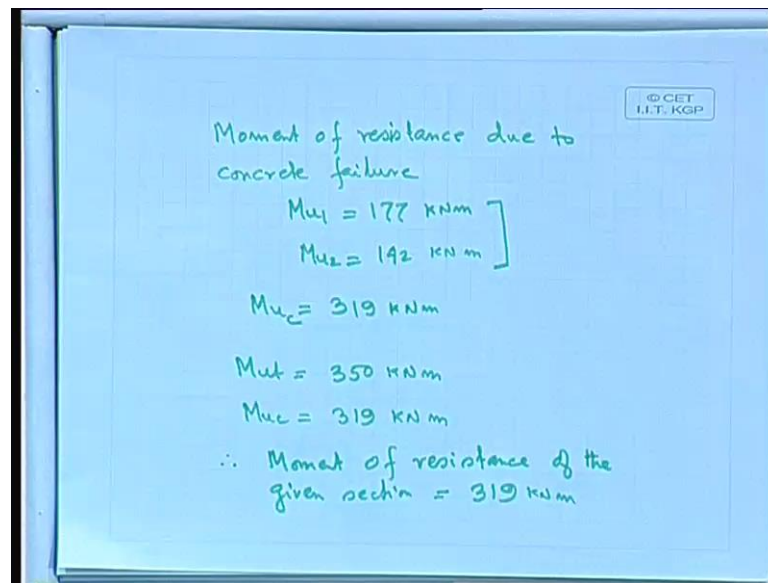 © CET
I.I.T. KGP
Moment of resistance due to
concrete failure
Mu1 = 177 KNm
Mu2 = 142 KNm
Muc = 319 KNm
Mut = 350 KNm
Muc = 319 KNm
∴ Moment of resistance of the
given section = 319 KNm